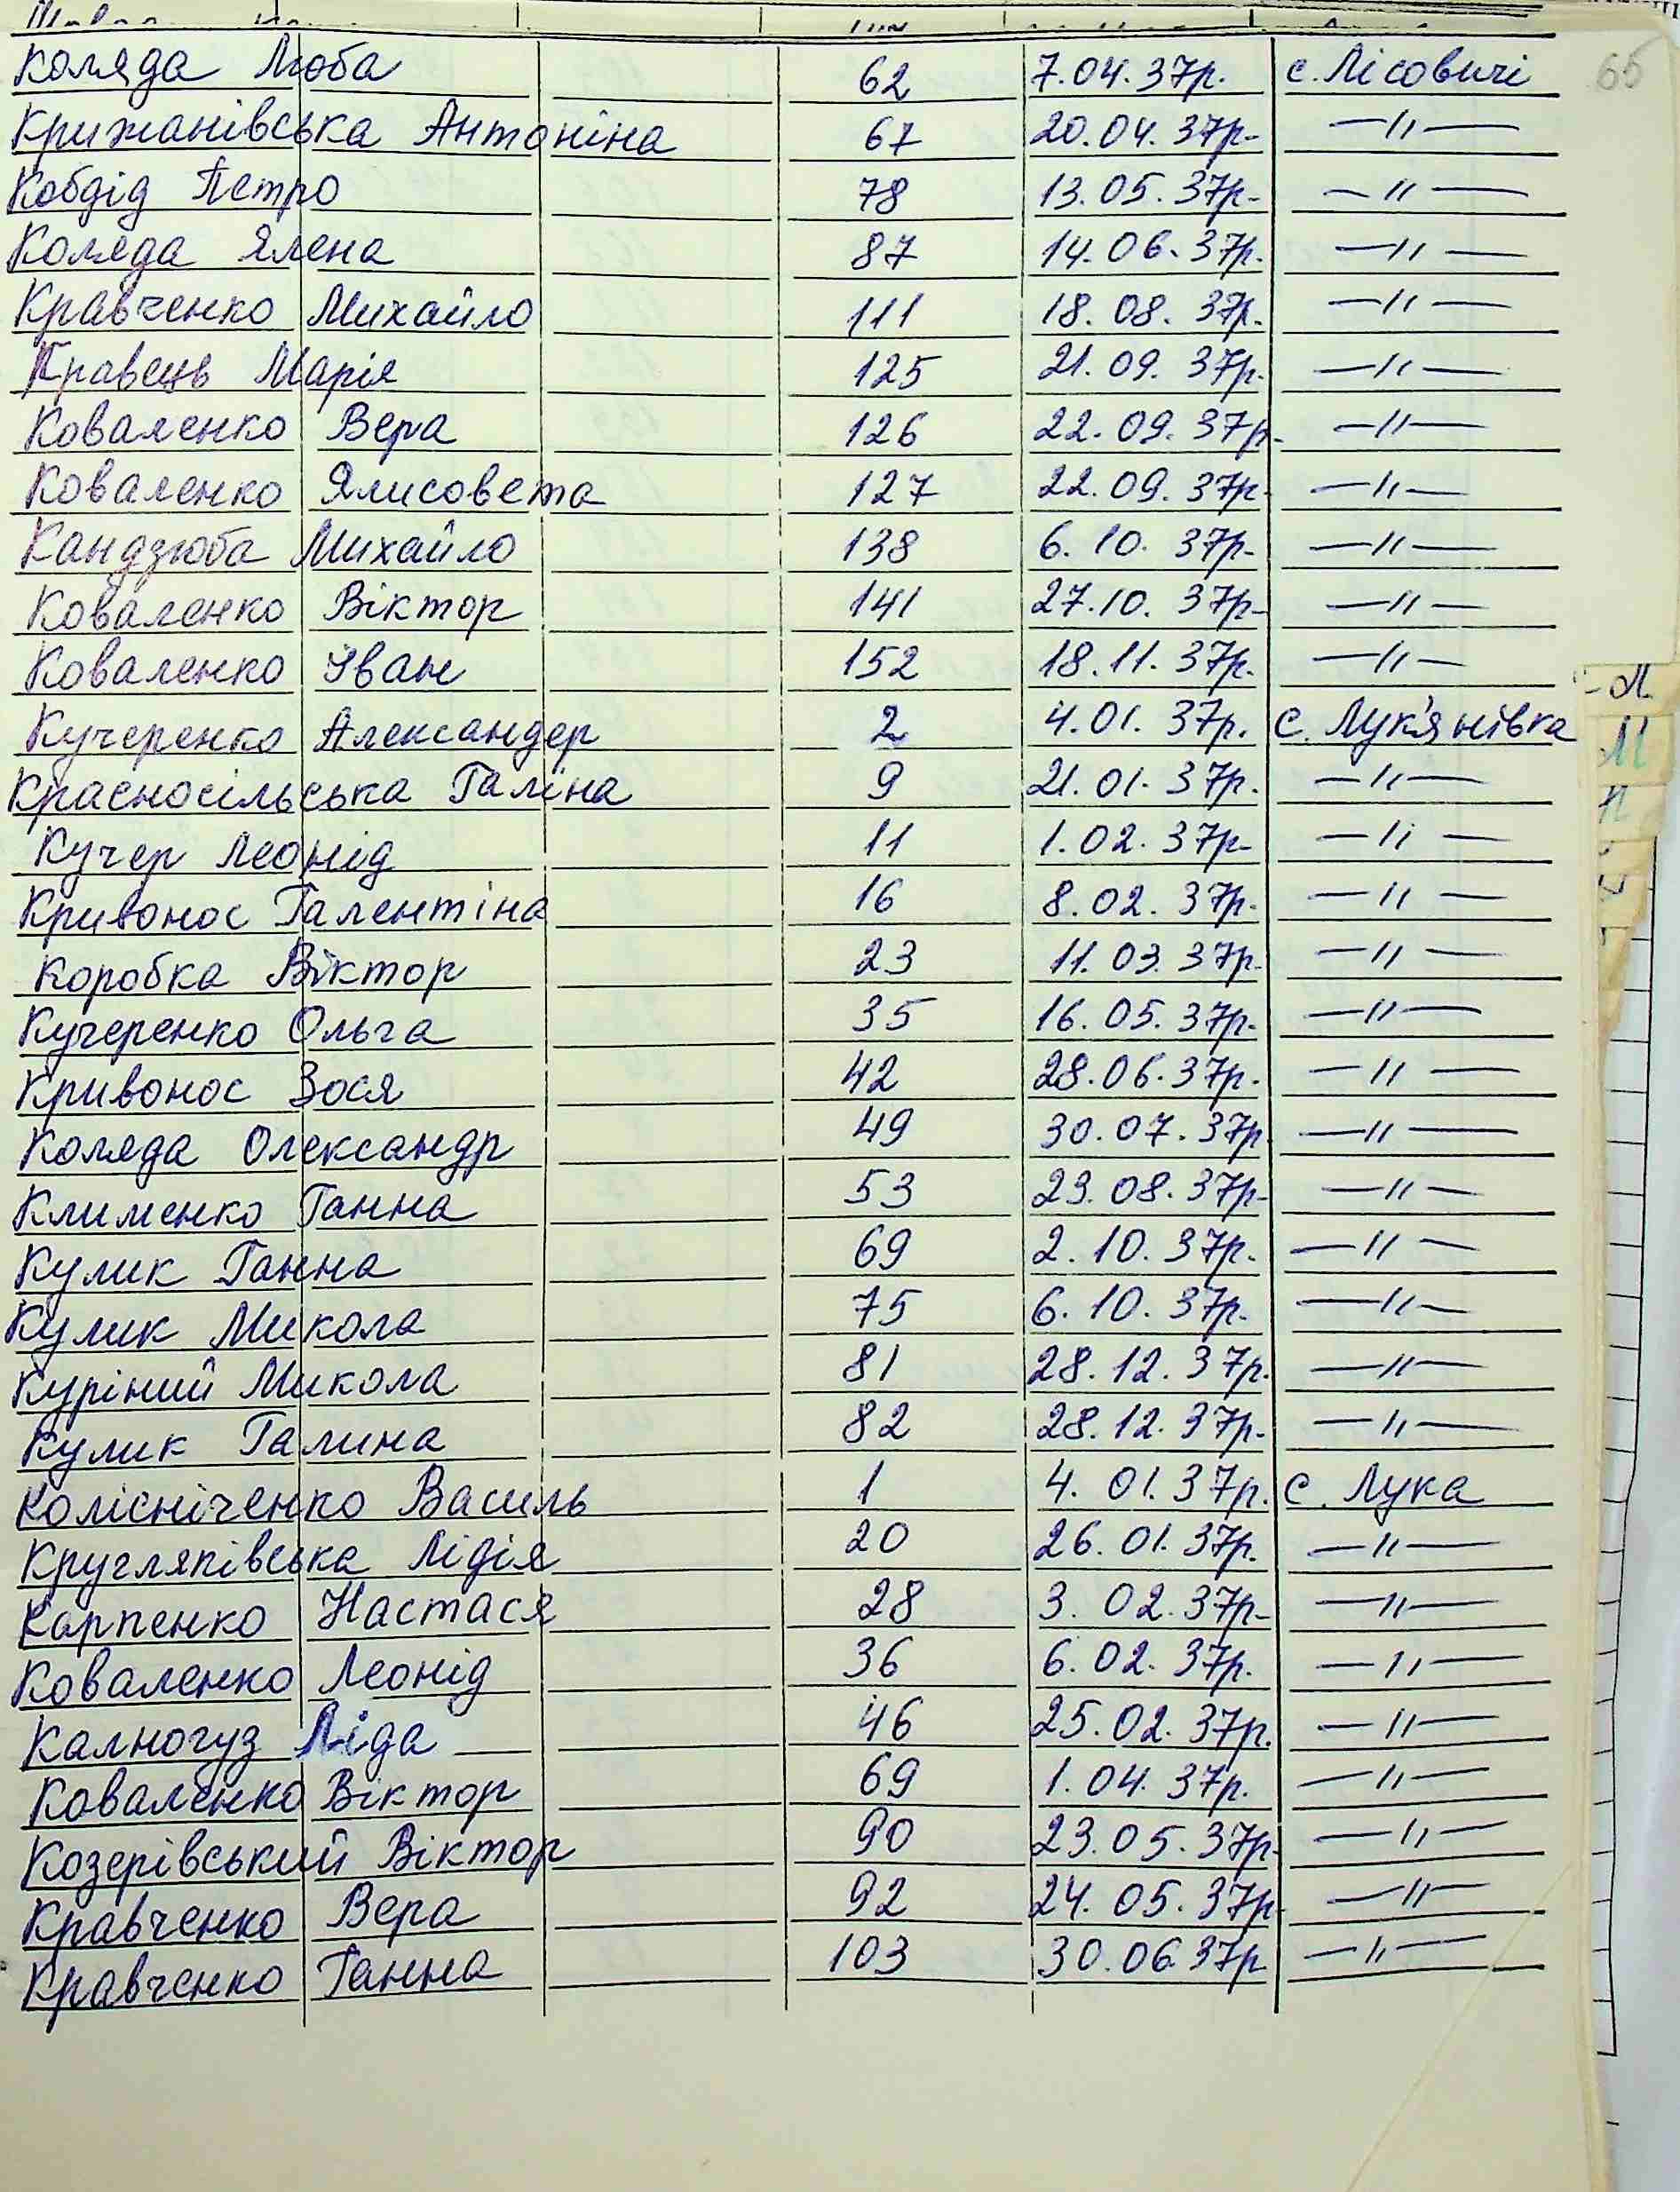 Коляда Люба 62 7.04.37р. с. Лісовичі 65
Крижанівська Антоніна 67 20.04.37р. —〃—
Кобдід Петро 78 13.05.37р. —〃—
Коляда Ялена 87 14.06.37р. —〃—
Кравченко Михайло 111 18.08.37р. —〃—
Кравець Марія 125 21.09.37р. —〃—
Коваленко Вера 126 22.09.37р. —〃—
Коваленко Ялисовета 127 22.09.37р. —〃—
Кандзюба Михайло 138 6.10.37р. —〃—
Коваленко Віктор 141 27.10.37р. —〃—
Коваленко Іван 152 18.11.37р. —〃—
Кучеренко Александер 2 4.01.37р. с. Лук'янівка
Красносільська Галіна 9 21.01.37р. —〃—
Кучер Леонід 11 1.02.37р. —〃—
Кривонос Галентіна 16 8.02.37р. —〃—
Коробка Віктор 23 11.03.37р. —〃—
Кучеренко Ольга 35 16.05.37р. —〃—
Кривонос Зося 42 28.06.37р. —〃—
Коляда Олександр 49 30.07.37р —〃—
Клименко Ганна 53 23.08.37р. —〃—
Кулик Ганна 69 2.10.37р. —〃—
Кулик Микола 75 6.10.37р. —〃—
Куріний Микола 81 28.12.37р. —〃—
Кулик Галина 82 28.12.37р. —〃—
Колісніченко Василь 1 4.01.37р. с. Лука
Кругляківська Лідія 20 26.01.37р. —〃—
Карпенко Настася 28 3.02.37р. —〃—
Коваленко Леонід 36 6.02.37р. —〃—
Калногуз Ліда 46 25.02.37р. —〃—
Коваленко Віктор 69 1.04.37р. —〃—
Козерівський Віктор 90 23.05.37р. —〃—
Кравченко Вера 92 24.05.37р. —〃—
Кравченко Ганна 103 30.06.37р —〃—